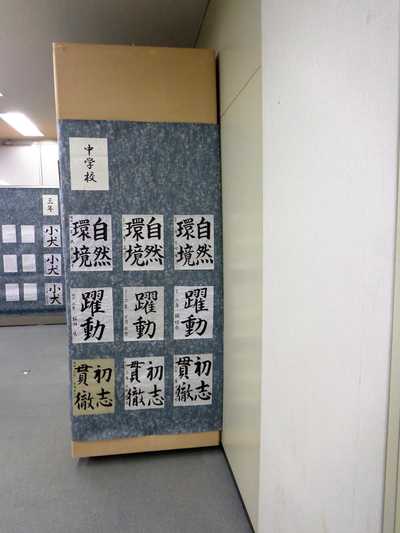 中学校
自然
環境
自然
環境
自然
環境
躍動
躍動
躍動
初志
貫徹
初志
貫徹
初志
貫徹
三年
小犬
小犬
小犬